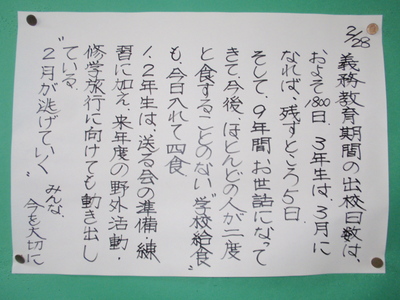 2/28
義務教育期間の出校日数は、
およそ1800日。3年生は、3月に
なれば、残すところ5日。
そして、9年間お世話になって
きて、今後、ほとんどの人が二度
と食することのない"学校給食"
も、今日入れて四食。
1、2年生は、送る会の準備・練
習に加え、来年度の野外活動・
修学旅行に向けても動き出し
ている。
"2月が逃げていく"
みんな、
今を大切に